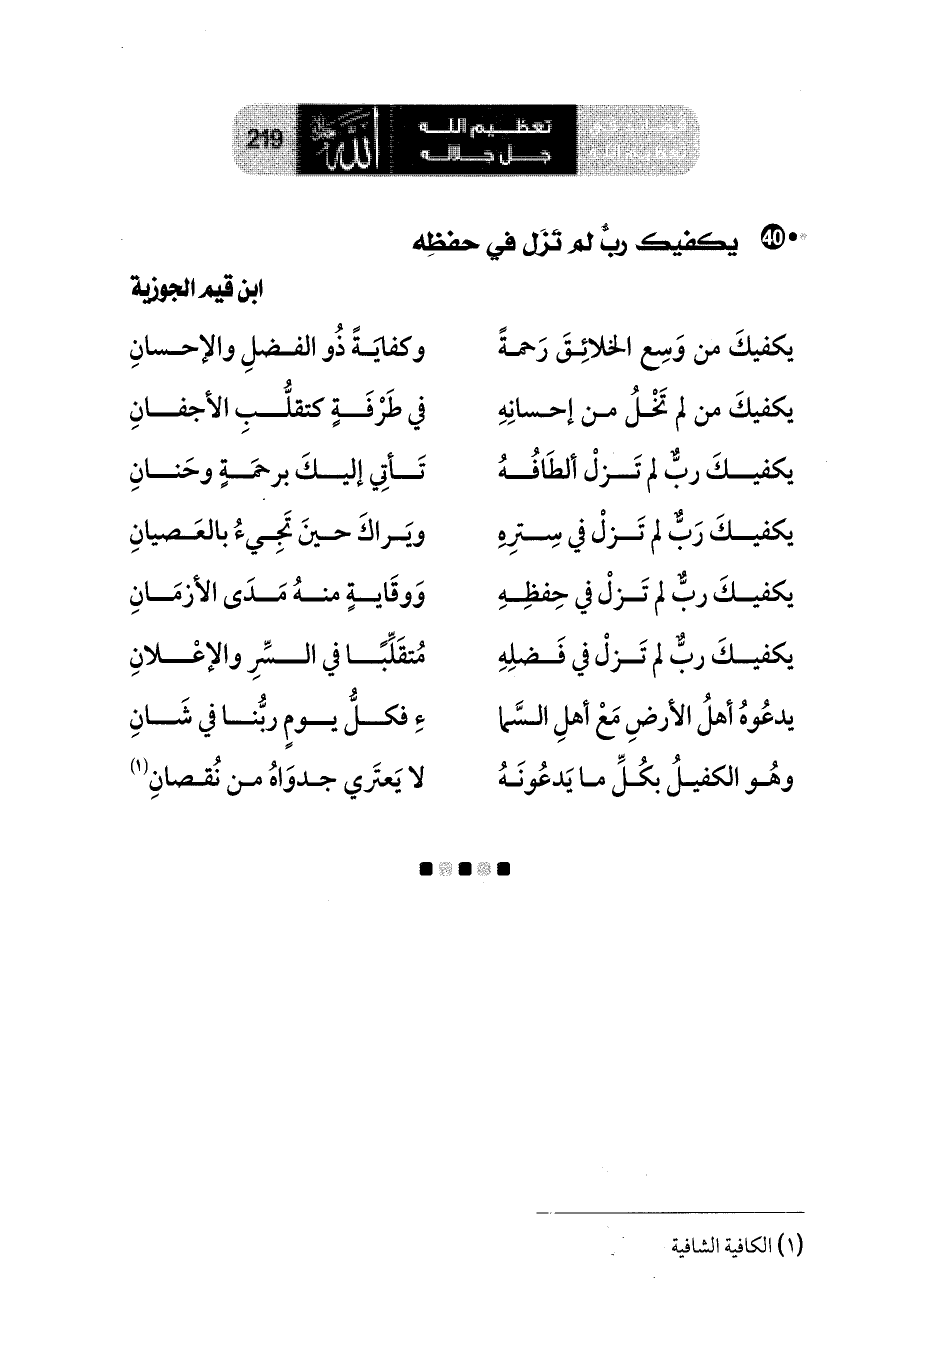 219
الله
تعظيم الله
جل جلاله
40 يكفيك ربٌّ لم تَزَل في حفظِه
ابن قيم الجوزية
يكفيكَ من وَسِع الخلائِقَ رَحمةً وكفايَةً ذُو الفضلِ والإحسانِ
يكفيكَ من لم تَخْلُ من إحسانِهِ في طَرْفَةٍ كتقلُّبِ الأجفانِ
يكفيكَ ربٌّ لم تَزلْ ألطَافُهُ تَأتي إليكَ برحمَةٍ وحَنانِ
يكفيكَ رَبٌّ لم تَزلْ في سِترِهِ ويَراكَ حينَ تَجِيءُ بالعَصيانِ
يكفيكَ ربٌّ لم تَزلْ في حِفظِهِ وَوقَايةٍ منهُ مَدَى الأزمَانِ
يكفيكَ ربٌّ لم تَزلْ في فَضلِهِ مُتقَلِّبًا في السِّرِ والإعْلانِ
يدعُوهُ أهلُ الأرضِ مَعْ أهلِ السَّما ءِ فكلُّ يومٍ ربُّنا في شَانِ
وهُو الكفيلُ بكُلِّ ما يَدعُونَهُ لا يَعتَري جدوَاهُ من نُقصانِ(١)
(١) الكافية الشافية